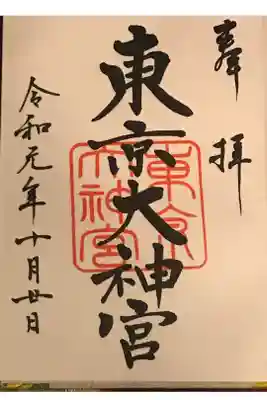 奉拝
東京大神宮
東京大神宮
令和元年十月廿日